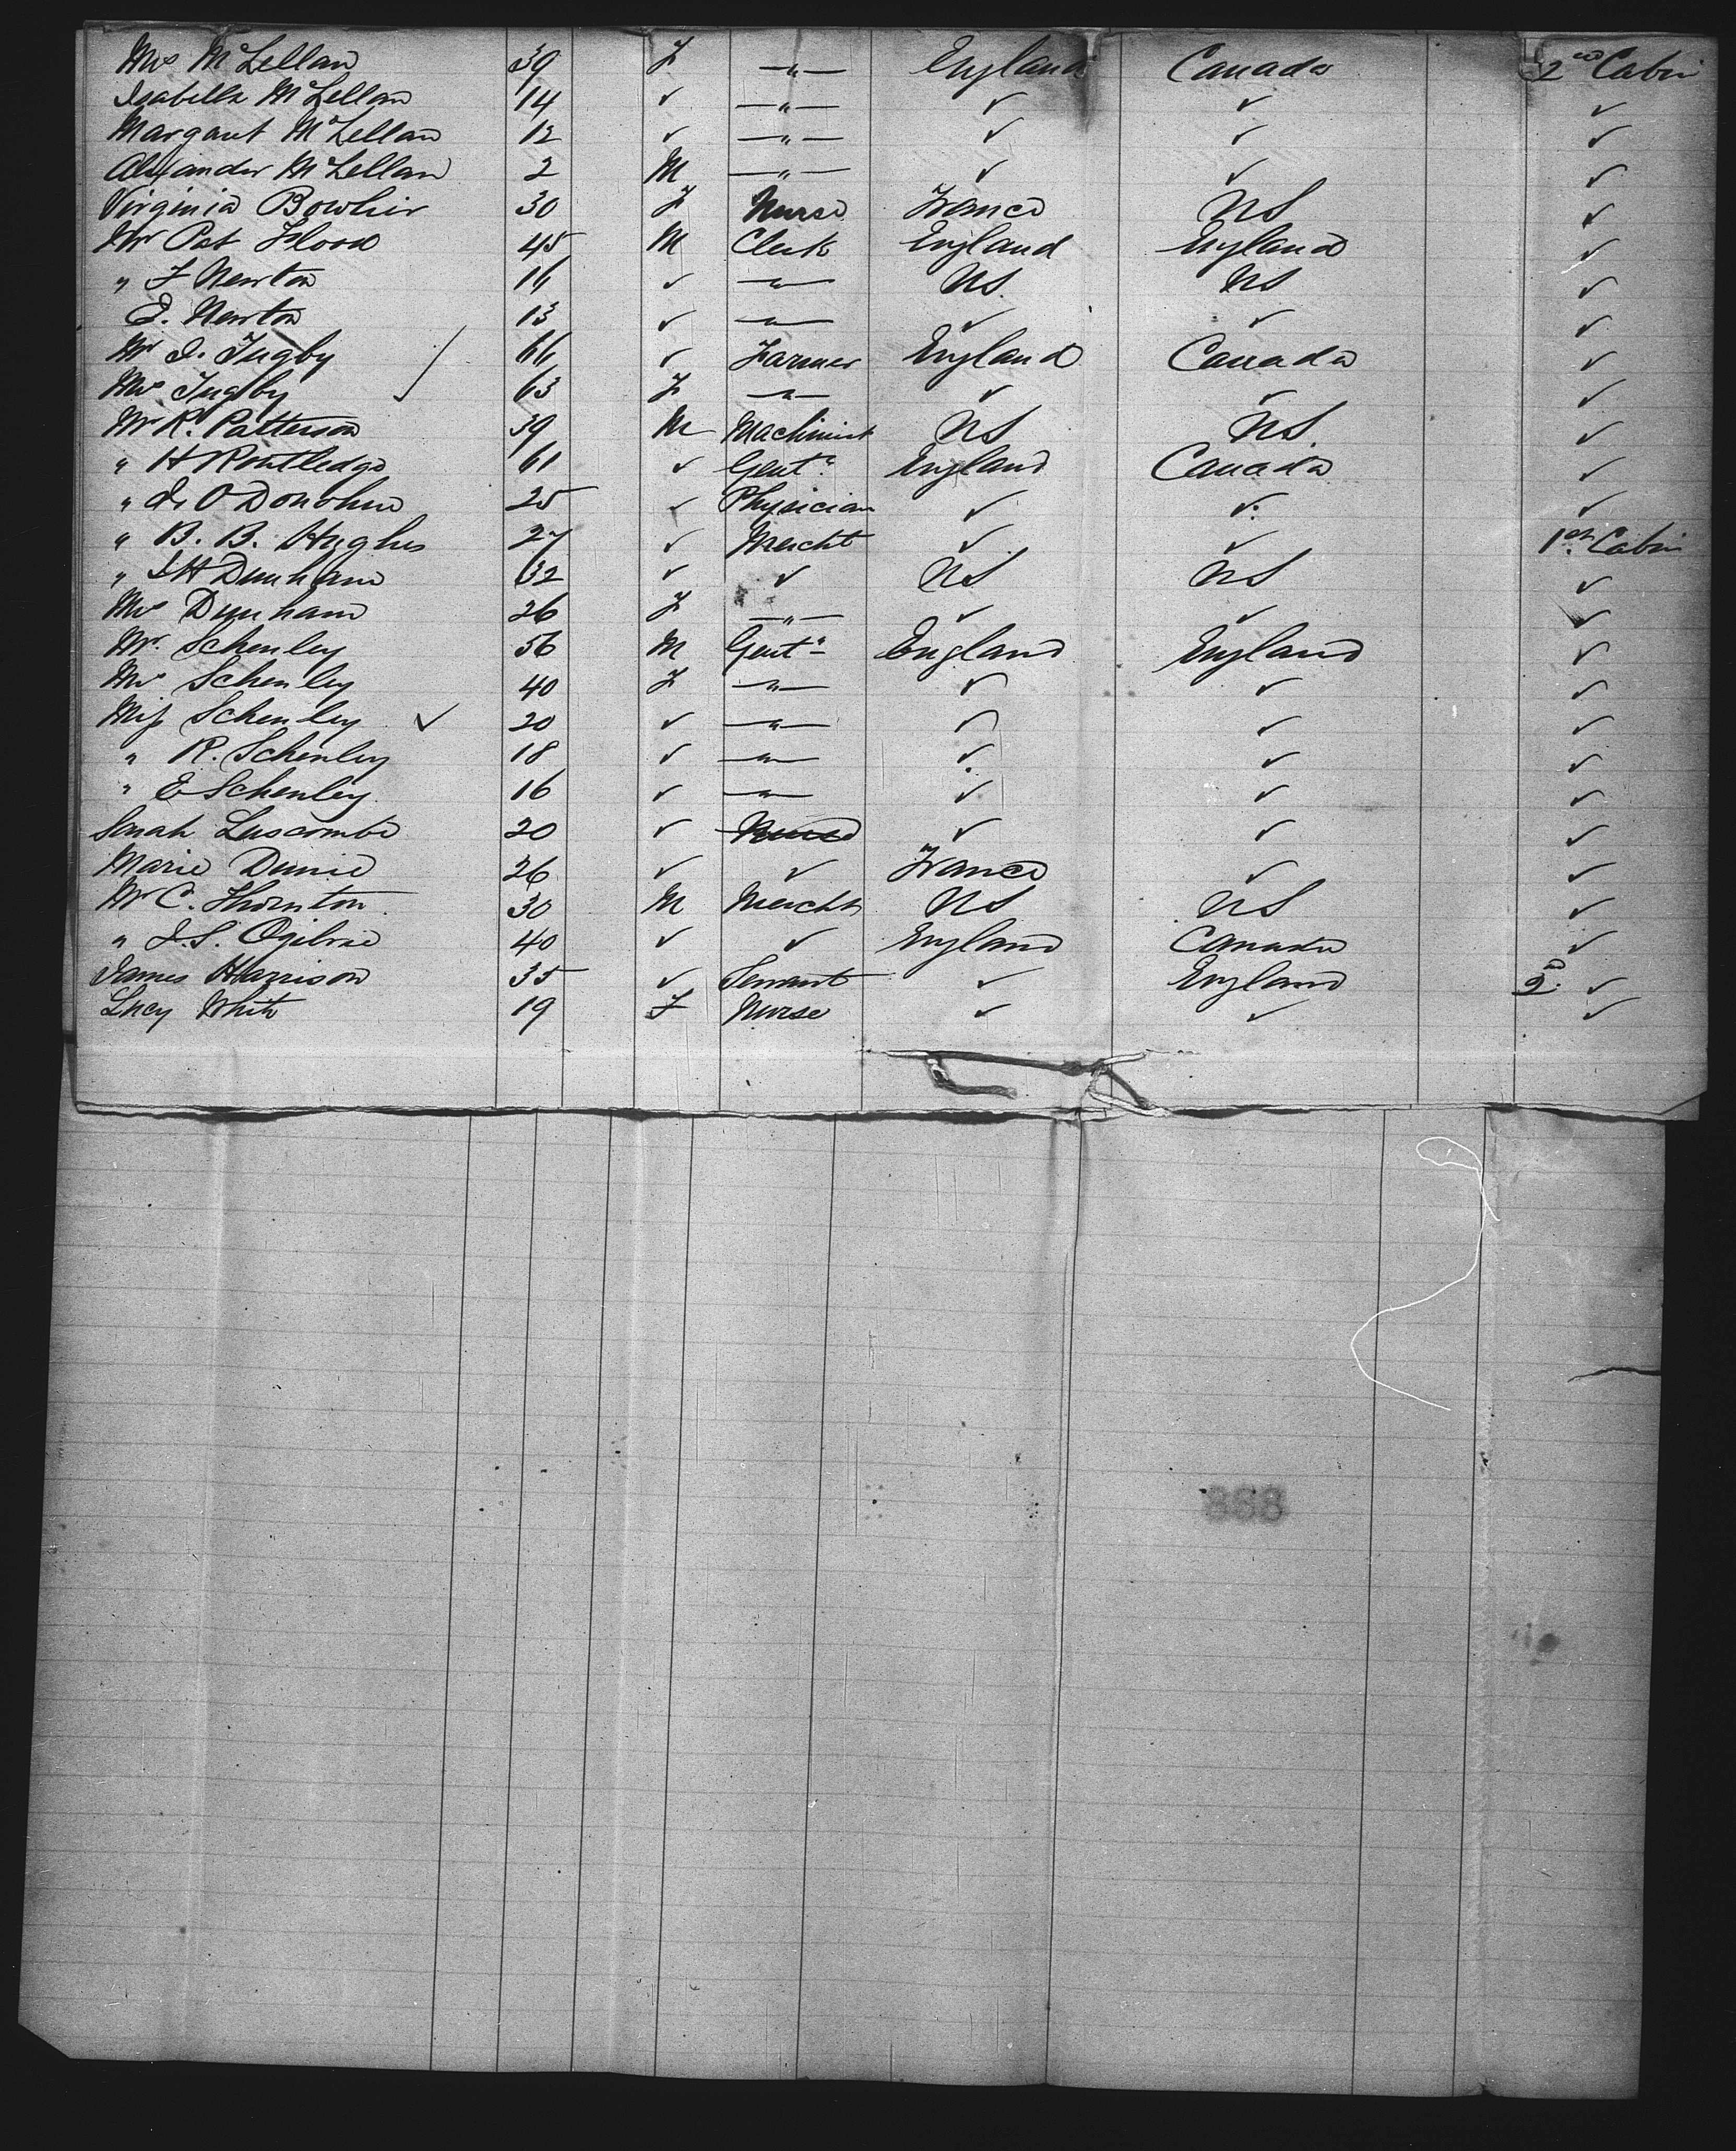 Mrs McLellan 39 F —"— England Canada 2nd Cabin
Isabella McLellan 14 ✓ —"— ✓ ✓ ✓
Margaret McLellan 12 ✓ —"— ✓ ✓ ✓
Alexander McLellan 2 M —"— ✓ ✓ ✓
Virginia 30 F Nurse France US ✓
Mr Pat Flood 45 M Clerk England England ✓
" F Newton 16 ✓ —"— US US ✓
E. Newton 13 ✓ —"— ✓ ✓ ✓
Mr J. Tugby 66 ✓ Farmer England Canada ✓
Mrs Tugby 63 F —"— ✓ ✓ ✓
Mr R. Patterson 39 M Machinist US US ✓
" H Routledge 61 ✓ Gentn England Canada ✓
" J. O Donohue 25 ✓ Physician ✓ ✓ ✓
" B. B. Hughes 27 ✓ Mercht ✓ ✓ 1st Cabin
" J H Dunham 32 ✓ ✓ US US ✓
Mrs Dunham 26 F —"— ✓ ✓ ✓
Mr. Schenley 56 M Gentn England England ✓
Mrs Schenley 40 F —"— ✓ ✓ ✓
Miss Schenley ✓ 20 ✓ —"— ✓ ✓ ✓
" R. Schenley 18 ✓ —"— ✓ ✓ ✓
" E Schenley 16 ✓ —"— ✓ ✓ ✓
Sarah Luscombe 20 ✓ Nurse ✓ ✓ ✓
Marie 26 ✓ ✓ France ✓ ✓
Mr C. Thornton 30 M Mercht US US ✓
" J. S. Ogilvie 40 ✓ ✓ England Canada ✓
James Harrison 35 ✓ Servant ✓ England 2d ✓
Lucy White 19 F Nurse ✓ ✓ ✓
888